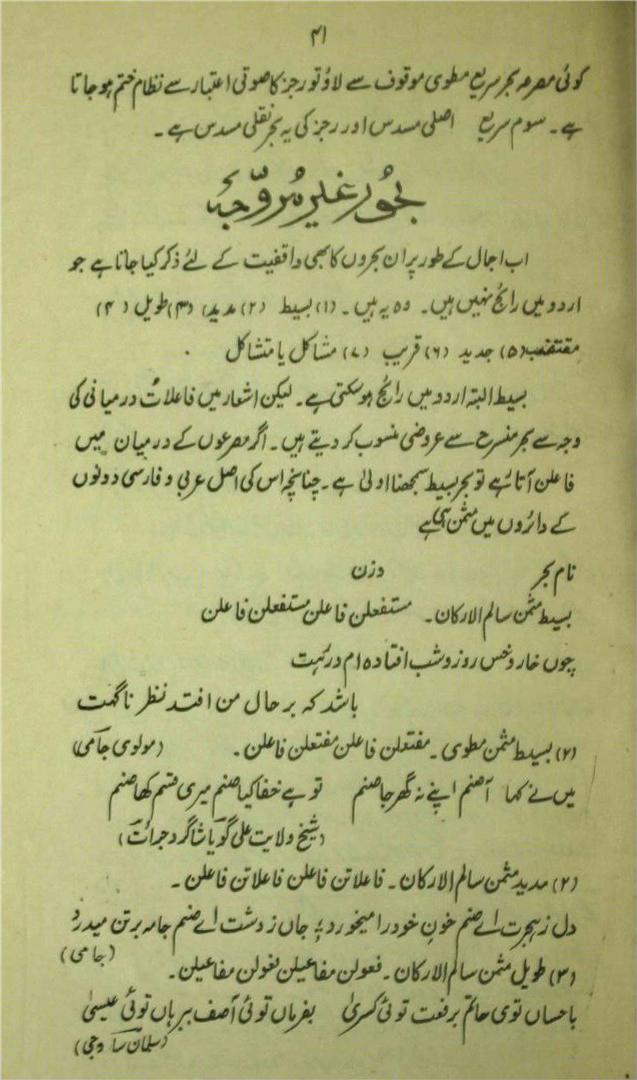 ۴۱
کوئی مصرعہ بحر سریع مطوی موقوف سے لاؤ تو رجز کا صوتی اعتبار سے نظام ختم ہو جاتا
ہے۔ سوم سریع اصلی مسدس اور رجز کی یہ بحر نقلی مسدس ہے۔
بحُور غیر مُروّجہ
اب اجمال کے طور پر ان بحروں کا بھی واقفیت کے لئے ذکر کیا جاتا ہے جو
اردو میں رائج نہیں ہیں۔ وہ یہ ہیں۔ (۱) بسیط (۲) مدید (۳) طویل (۴)
مقتضب (۵) جدید (۶) قریب (۷) مشاکل یا متشاکل
بسیط البتہ اردو میں رائج ہو سکتی ہے۔ لیکن اشعار میں فاعلاتُ درمیانی کی
وجہ سے بحر منسرح سے عروضی منسوب کر دیتے ہیں۔ اگر مصرعوں کے درمیان میں
فاعلن آتا ہے تو بحر بسیط سمجھنا اولیٰ ہے۔ چنانچہ اس کی اصل عربی و فارسی دونوں
کے دائروں میں مثمن ہی ہے
نام بحر وزن
بسیط مثمن سالم الارکان۔ مستفعلن فاعلن مستفعلن فاعلن
چوں خار و خس روز و شب افتادہ ام در رہت
باشد کہ بر حال من افتد نظر ناگہت
(۲) بسیط مثمن مطوی۔ مفتعلن فاعلن مفتعلن فاعلن۔ (مولوی جامی)
میں نے کہا آ صنم اپنے نہ گھر جا صنم تو ہے خفا کیا صنم میری قسم کھا صنم
(شیخ ولایت علی گویا شاگرد جرائت)
(۲) مدید مثمن سالم الارکان۔ فاعلاتن فاعلن فاعلاتن فاعلن۔
دل ز ہجرت اے صنم خون خود را میخورد ؛ جاں ز دشت اے صنم جامہ بر تن میدرد
(جامی)
(۳) طویل مثمن سالم الارکان۔ فعولن مفاعیلن فعولن مفاعیلن۔
باحساں توی حاتم برفعت توئی کسریٰ بفرماں توئی آصف ببرہاں توئی عیسیٰ
(سلمان ساوجی)